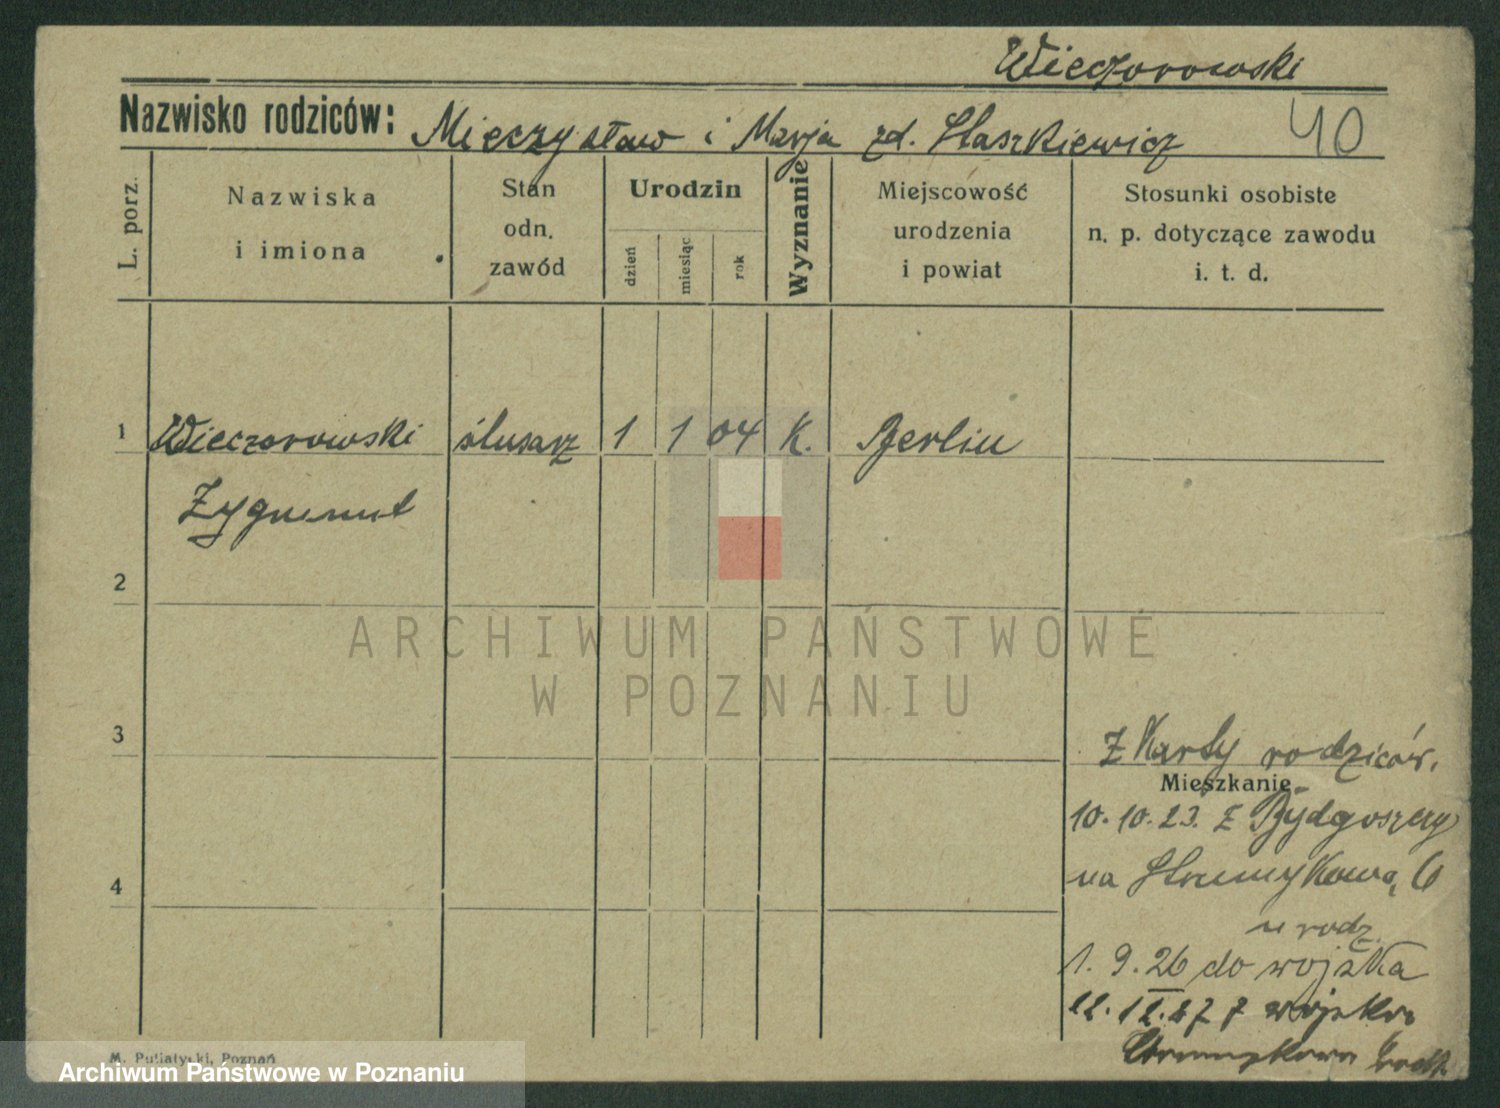 Wieczorowski
Nazwisko rodziców: Mieczysław i Marja zd. Staszkiewicz 40
L. porz.
Nazwiska
i imiona
Stan
odn.
zawód
Urodzin
dzień
miesiąc
rok
Wyznanie
Miejscowość
urodzenia
i powiat
Stosunki osobiste
n. p. dotyczące zawodu
i. t. d.
1 Wieczorowski ślusarz 1 1 04 K. Berlin
Zygmunt
2
3
4
Z Karty rodziców.
Mieszkanie
10.10.23. z Bydgoszczy
na Strumykową 6
u rodz.
1. 9. 26 do wojska
z wojska
Strumykowa
M. Putiatycki, Poznań
ARCHIWUM PAŃSTWOWE
W POZNANIU
Archiwum Państwowe w Poznaniu